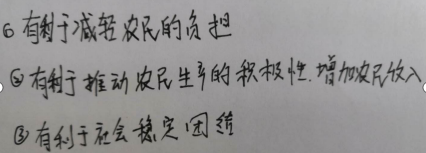 ⑥有利于减轻农民的负担
②有利于推动农民生产的积极性.增加农民收入
③有利于社会稳定团结